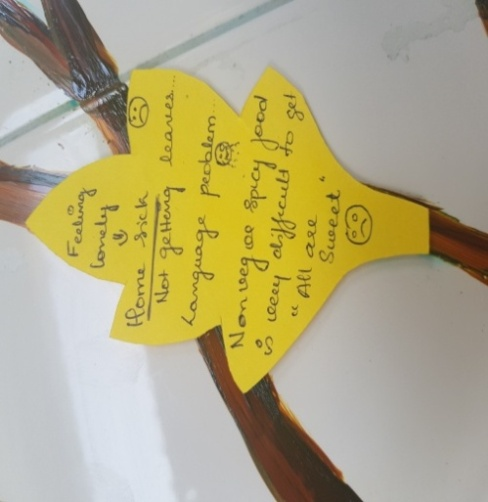 Feeling
lonely
&
Home sick
Not getting leaves...
Language problem...
Nonveg or spicy food
is very difficult to get
"All are
Sweet"